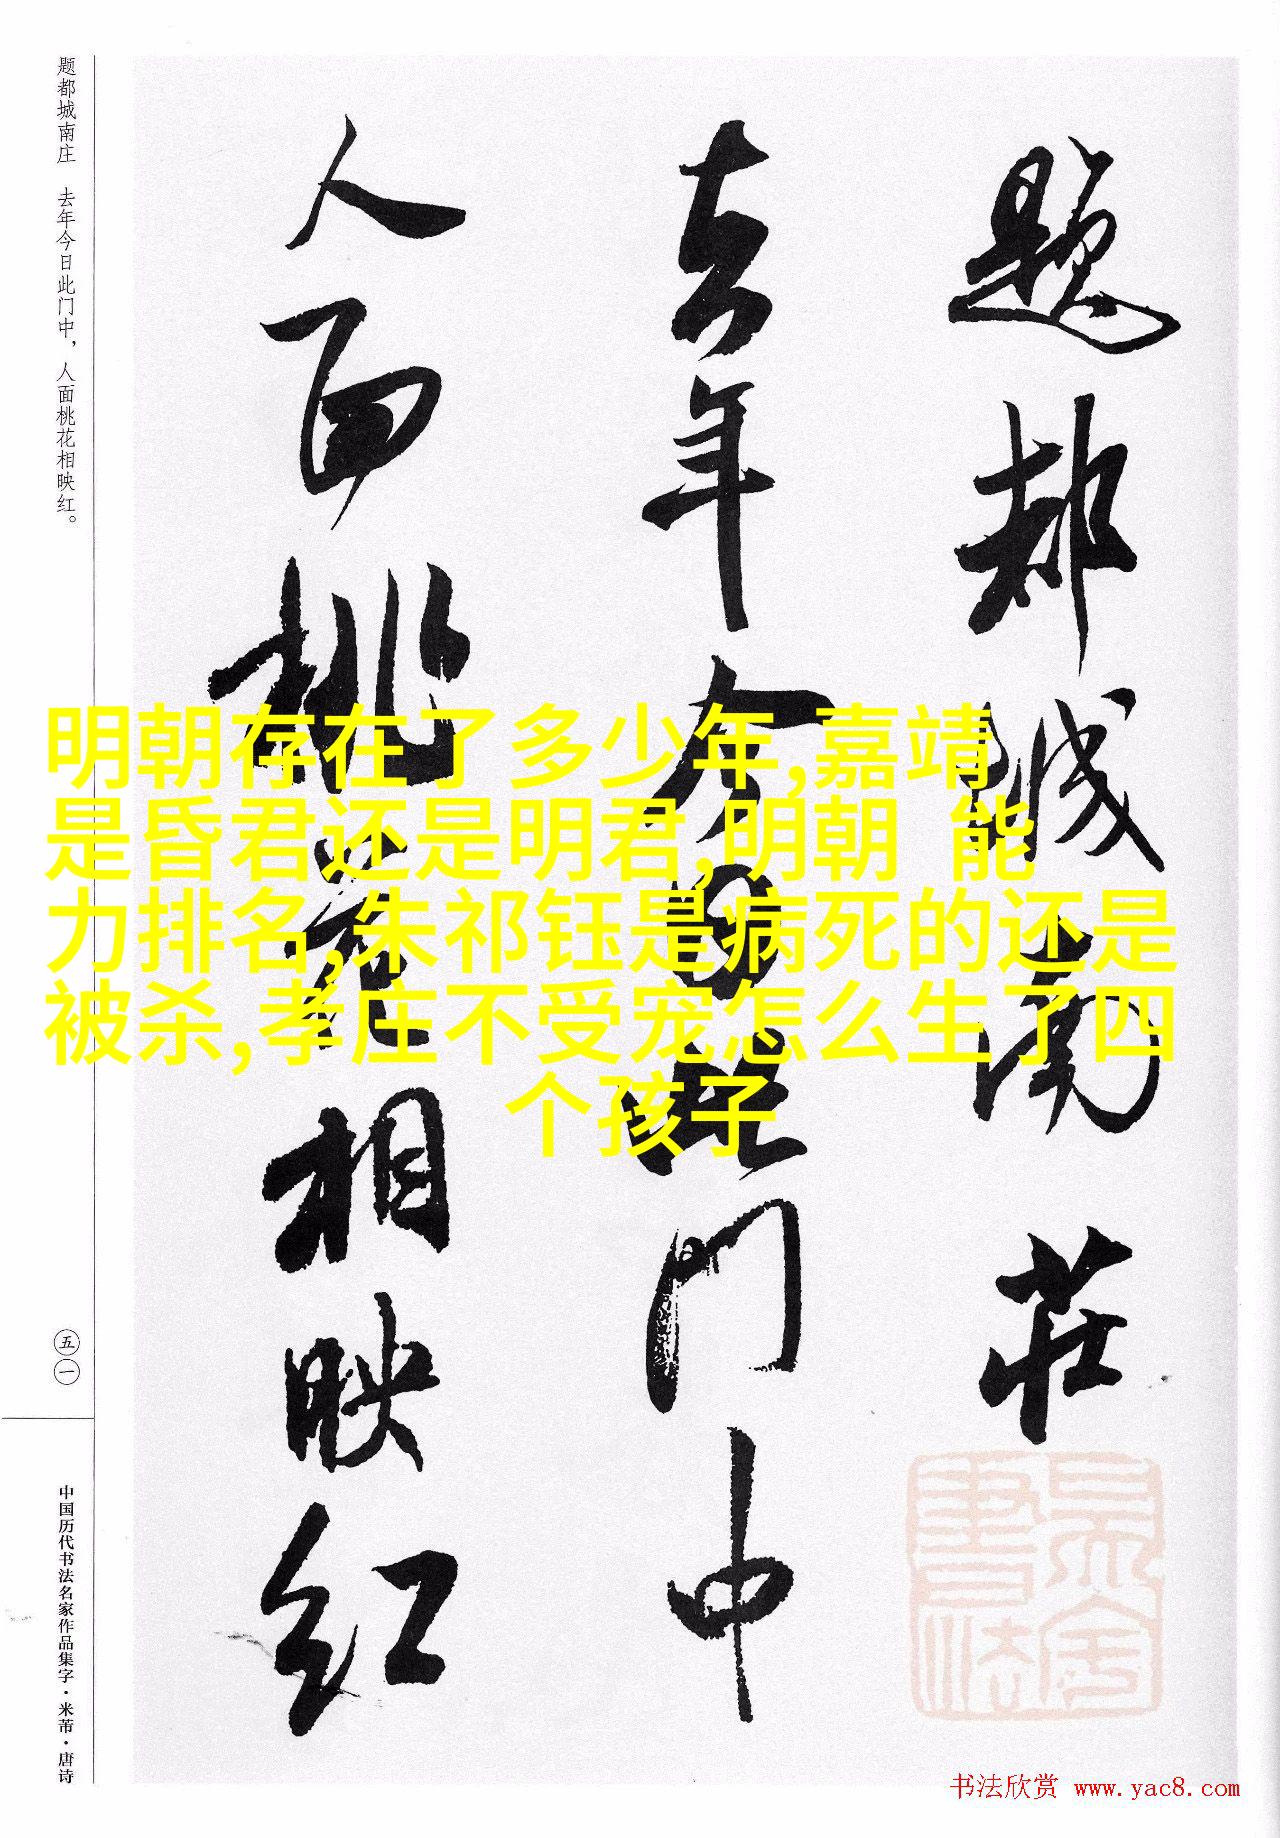 题都城南庄
去年今日此门中
人面桃花相映红
题都城南庄 去年今日此门中，人面桃花相映红。
五一
中国历代书法名家作品集字·米芾·唐诗
明朝存在了多少年,嘉靖
是昏君还是明君,明朝 能
力排名,朱祁钰是病死的还是
被杀,孝庄不受宠怎么生了四
个孩子
书法欣赏 www.yac8.com